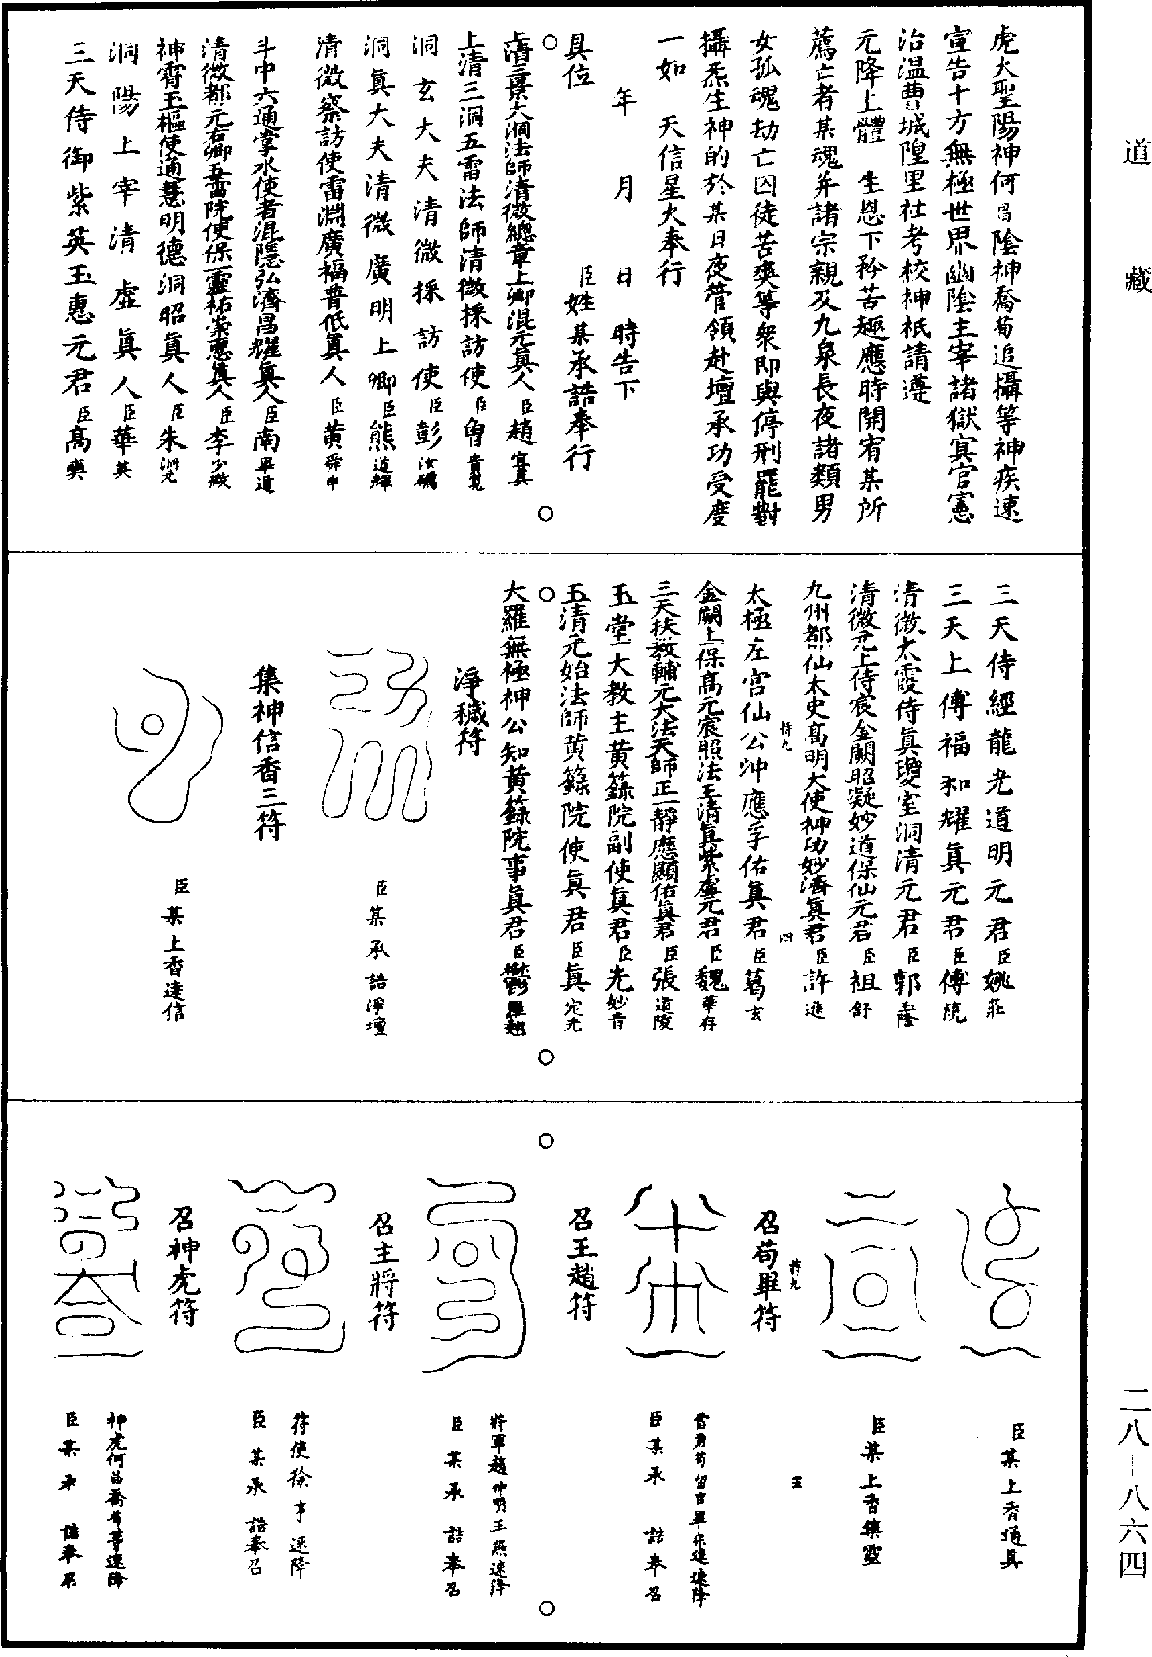 道藏
虎大聖陽神何昌陰神喬荀追攝等神疾速
宣告十方無極世界幽陰主宰諸獄冥官憲
治溫曹城隍里社考校神祇請遵
元降上體　生恩下矜苦趣應時開宥某所
薦亡者某魂并諸宗親及九泉長夜諸類男
女孤魂劫亡囚徒苦爽等衆即與停刑罷對
攝炁生神的於某日夜管領赴壇承功受度
一如　天信星火奉行
年　月　日　時告下
具位　臣姓某承誥奉行
上清三景大洞法師清微總章上卿混元真人臣趙宜真
上清三洞五雷法師清微採訪使臣曾貴寬
洞玄大夫清微採訪使臣彭汝礪
洞眞大夫清微廣明上卿臣熊道輝
清微察訪使雷淵廣福普化眞人臣黄舜申
斗中六通掌水使者混隱弘濟昌耀眞人臣南畢道
清微都元右卿五雷院使保一靈祐崇惠眞人臣李少微
神霄玉樞使通慧明德洞昭眞人臣朱洞元
洞陽上宰清虛眞人臣華英
三天侍御紫英玉惠元君臣高奭
三天侍經龍光道明元君臣姚莊
三天上傅福和耀眞元君臣傅㷀
清微太霞侍眞瓊室洞清元君臣郭隆
清微元上侍宸金闕昭凝妙道保仙元君臣祖舒
九州都仙太史高明大使神功妙濟眞君臣許遜
太極左宮仙公冲應孚佑眞君臣葛玄
金闕上保高元宸照法王清眞紫虛元君臣魏華存
三天扶教輔元大法天師正一靜應顯佑眞君臣張道陵
玉堂大教主黄籙院副使眞君臣光妙音
玉清元始法師黄籙院使眞君臣眞定光
大羅無極神公知黄籙院事眞君臣鬱羅翹
淨穢符
臣某承誥淨壇
集神信香三符
臣某上香達信
臣某上香通眞
臣某上香集靈
召苟畢符
雷君苟留吉畢宗遠速降
臣某承誥奉召
召王趙符
將軍趙仲明王照速降
臣某承誥奉召
召主將符
符使徐亨速降
臣某承誥奉召
召神虎符
神虎何昌喬荀等速降
臣某承誥奉召
二八—八六四